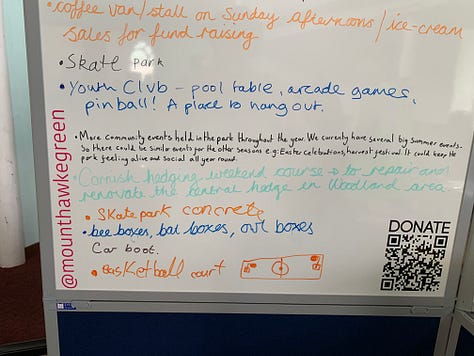 • coffee van/stall on Sunday afternoons/ice-cream
sales for fund raising
• Skate park
• Youth Club – pool table, arcade games,
pinball! A place to hang out.
• More community events held in the park throughout the year. We currently have several big summer events.
So there could be similar events for the other seasons e.g: Easter Celebrations, harvest festival. It could keep the
park feeling alive and social all year round.
• Cornish hedging weekend course → to repair and
renovate the central hedge in Woodland area
• Skate park concrete
• bee boxes, bat boxes, owl boxes
Car boot.
• basketball court
@mounthawkegreen
DONATE